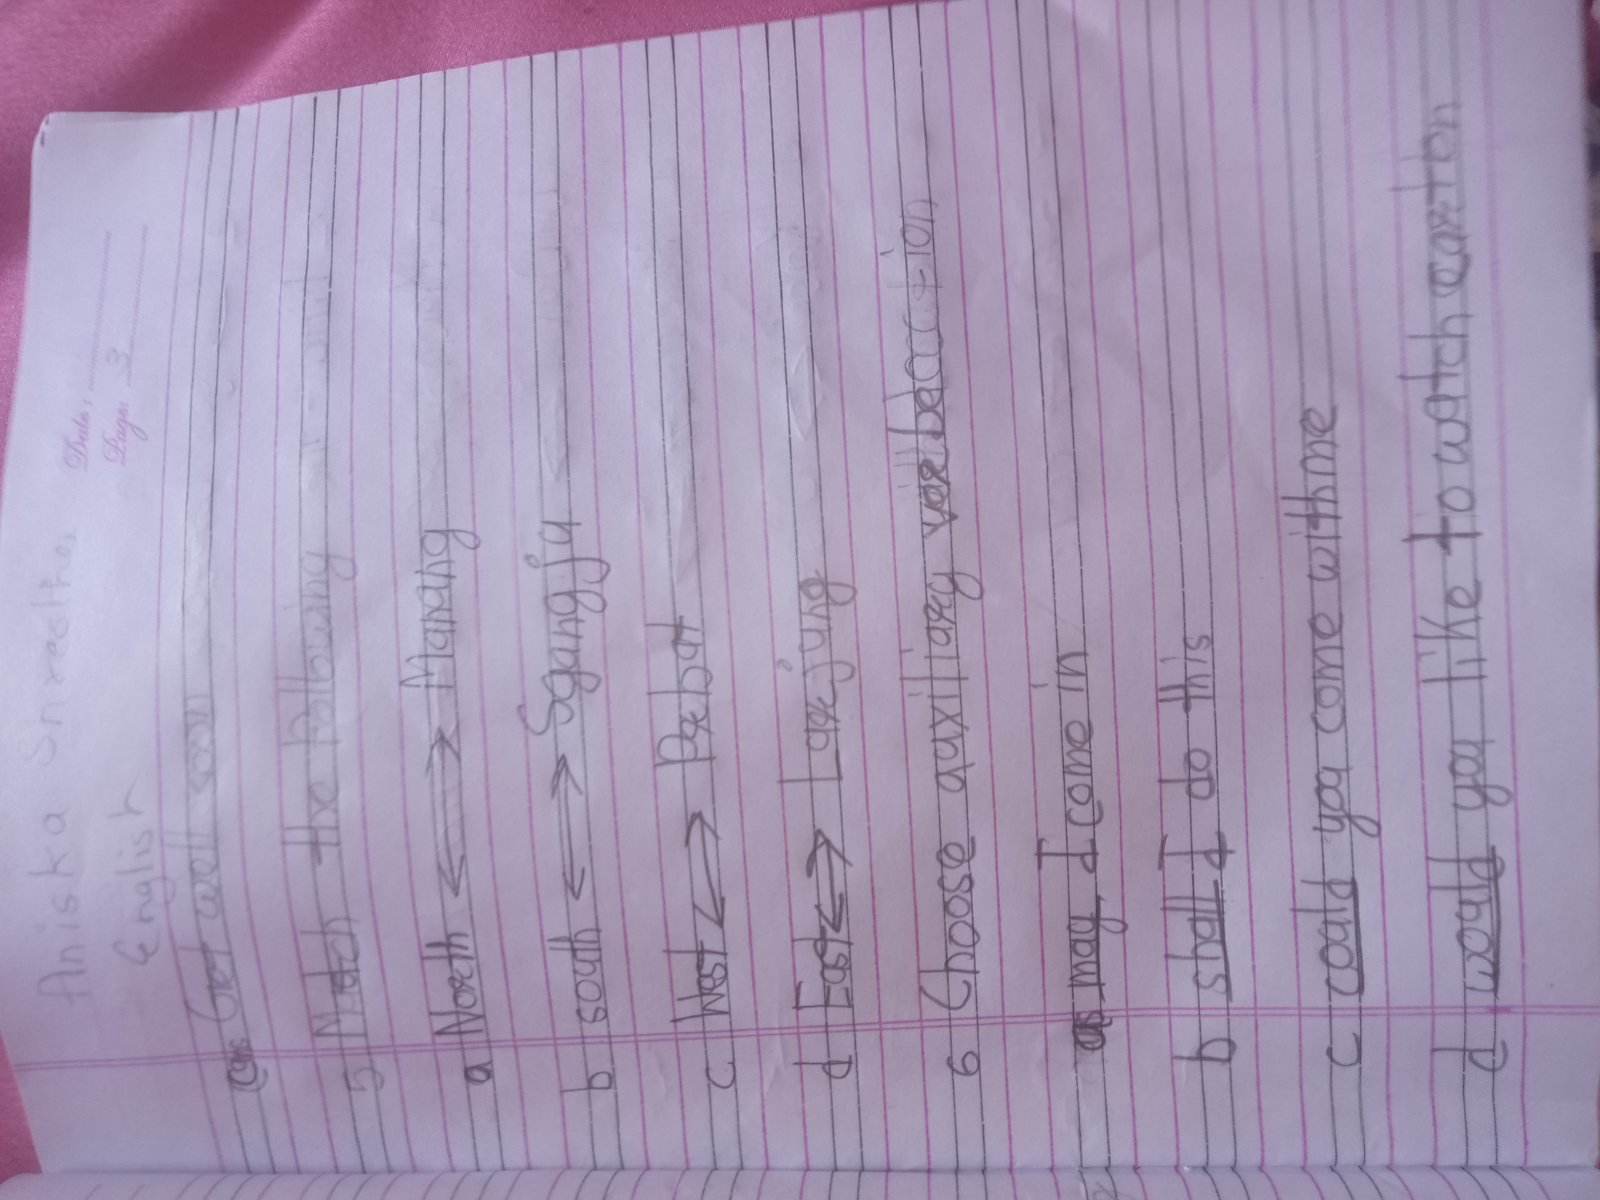 Aniska Shrestha
English
Date:
Page: 3
ans Get well soon
5 Match the following
a North <=> Manang
b south <=> Sganggju
c West <-> Parbat
d East <-> Larjung
6 Choose auxiliary
as may I come in
b shall I do this
c could you come with me
d would you like to watch carton